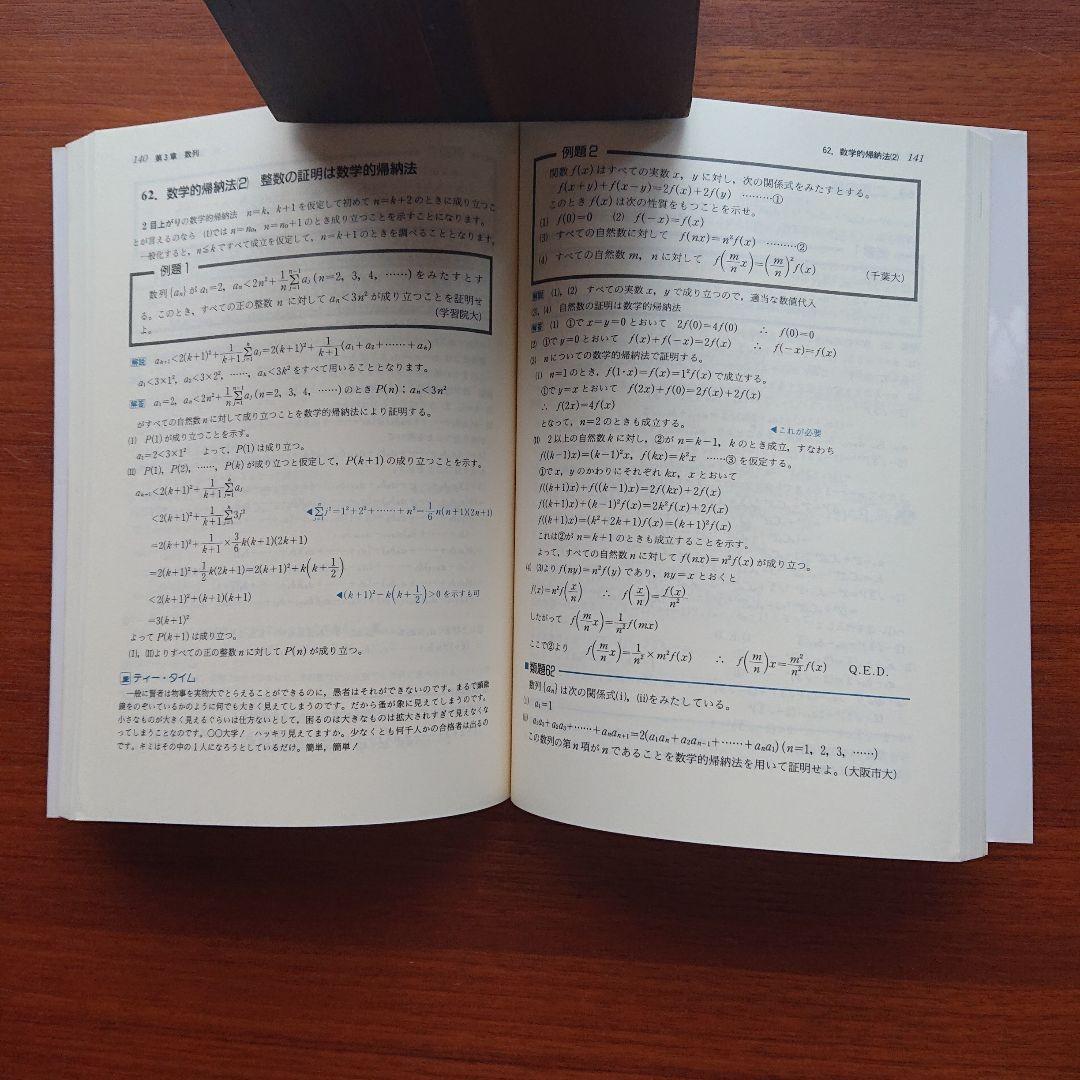 140 第3章 数列
62. 数学的帰納法(2) 整数の証明は数学的帰納法
2目上がりの数学的帰納法 n=k, k+1を仮定して初めてn=k+2のときに成り立つこ
とが言えるのなら (I)ではn=n₀, n=n₀+1のとき成り立つことを示すことになります。
一般化すると, n≦kですべて成立を仮定して, n=k+1のときを調べることとなります。
例題1
数列{aₙ}がa₁=2, aₙ<2n²+1/n Σ_{j=1}^{n-1} aⱼ (n=2, 3, 4, ……)をみたすとす
る。このとき, すべての正の整数nに対してaₙ<3n²が成り立つことを証明せ
よ。 (学習院大)
解説 aₖ₊₁<2(k+1)²+1/(k+1) Σ_{j=1}^{k} aⱼ=2(k+1)²+1/(k+1) (a₁+a₂+……+aₖ)
a₁<3×1², a₂<3×2², ……, aₖ<3k²をすべて用いることとなります。
解答 a₁=2, aₙ<2n²+1/n Σ_{j=1}^{n-1} aⱼ (n=2, 3, 4, ……)のときP(n): aₙ<3n²
がすべての自然数nに対して成り立つことを数学的帰納法により証明する。
(I) P(1)が成り立つことを示す。
a₁=2<3×1² よって, P(1)は成り立つ。
(II) P(1), P(2), ……, P(k)が成り立つと仮定して, P(k+1)の成り立つことを示す。
aₖ₊₁<2(k+1)²+1/(k+1) Σ_{j=1}^{k} aⱼ
<2(k+1)²+1/(k+1) Σ_{j=1}^{k} 3j² ◀Σ_{j=1}^{n} j²=1²+2²+……+n²=1/6 n(n+1)(2n+1)
=2(k+1)²+1/(k+1)×3/6 k(k+1)(2k+1)
=2(k+1)²+1/2 k(2k+1)=2(k+1)²+k(k+1/2)
<2(k+1)²+(k+1)(k+1) ◀(k+1)²-k(k+1/2)>0を示すも可
=3(k+1)²
よってP(k+1)は成り立つ。
(I), (II)よりすべての正の整数nに対してP(n)が成り立つ。
ティー・タイム
一般に賢者は物事を実物大でとらえることができるのに, 愚者はそれができないのです。まるで顕微
鏡をのぞいているかのように何でも大きく見えてしまうのです。だから蚤が象に見えてしまうのです。
小さなものが大きく見えるぐらいは仕方ないとして, 困るのは大きなものは拡大されすぎて見えなくな
ってしまうことなのです。〇〇大学! ハッキリ見えてますか。少なくとも何千人かの合格者は出るの
です。キミはその中の1人になろうとしているだけ。簡単, 簡単!
62. 数学的帰納法(2) 141
例題2
関数f(x)はすべての実数x, yに対し, 次の関係式をみたすとする。
f(x+y)+f(x-y)=2f(x)+2f(y) ………①
このときf(x)は次の性質をもつことを示せ。
(1) f(0)=0 (2) f(-x)=f(x)
(3) すべての自然数に対して f(nx)=n²f(x) ………②
(4) すべての自然数m, nに対して f(m/n x)=(m/n)²f(x) (千葉大)
解説 (1), (2) すべての実数x, yで成り立つので, 適当な数値代入
(3), (4) 自然数の証明は数学的帰納法
解答 (1) ①でx=y=0とおいて 2f(0)=4f(0) ∴ f(0)=0
(2) ①でx=0とおいて f(y)+f(-x)=2f(x) ∴ f(-x)=f(x)
(3) nについての数学的帰納法で証明する。
(I) n=1のとき, f(1·x)=f(x)=1²f(x)で成立する。
①でy=xとおいて f(2x)+f(0)=2f(x)+2f(x)
∴ f(2x)=4f(x)
となって, n=2のときも成立する。 ◀これが必要
(II) 2以上の自然数kに対し, ②がn=k-1, kのとき成立, すなわち
f((k-1)x)=(k-1)²x, f(kx)=k²x ……③を仮定する。
①でx, yのかわりにそれぞれkx, xとおいて
f((k+1)x)+f((k-1)x)=2f(kx)+2f(x)
f((k+1)x)+(k-1)²f(x)=2k²f(x)+2f(x)
f((k+1)x)=(k²+2k+1)f(x)=(k+1)²f(x)
これは②がn=k+1のときも成立することを示す。
よって, すべての自然数nに対してf(nx)=n²f(x)が成り立つ。
(4) (3)よりf(ny)=n²f(y)であり, ny=xとおくと
f(x)=n²f(x/n) ∴ f(x/n)=f(x)/n²
したがって f(m/n x)=1/n² f(mx)
ここで②より f(m/n x)=1/n²×m²f(x) ∴ f(m/n)x=m²/n² f(x) Q.E.D.
類題62
数列{aₙ}は次の関係式(i), (ii)をみたしている。
(i) a₁=1
(ii) a₁a₂+a₂a₃+……+aₙaₙ₊₁=2(a₁aₙ+a₂aₙ₋₁+……+aₙa₁) (n=1, 2, 3, ……)
この数列の第n項がnであることを数学的帰納法を用いて証明せよ。(大阪市大)